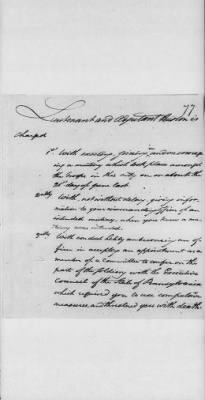 77
Lieutenant and Adjutant Huston is
charged
1st With exciting, joining and encourag-
ing a mutiny which took place amongst
the troops in this city on or about the
21st day of June last.
2dly With, not without delay giving infor-
mation to your commanding officer of an
intended mutiny, when you knew a mu-
tiny was intended.
3dly With conduct unbecoming an of-
ficer in accepting an appointment as a
member of a committee to confer on the
part of the soldiery with the Executive
Council of the State of Pennsylvania
which required you to use compulsive
measures, and threatened you with death